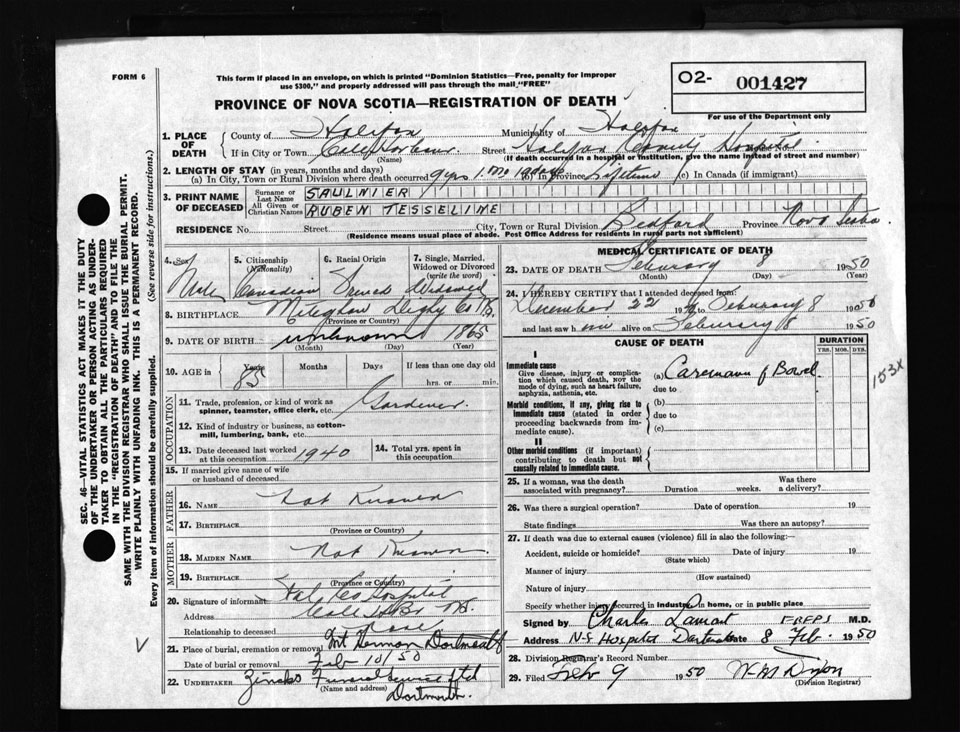 FORM 6
This form if placed in an envelope, on which is printed "Dominion Statistics—Free, penalty for improper
use $300," and properly addressed will pass through the mail "FREE"
O2- 001427
For use of the Department only
PROVINCE OF NOVA SCOTIA—REGISTRATION OF DEATH
1. PLACE OF DEATH
County of Halifax Municipality of Halifax
If in City or Town Cole Harbour Street Halifax County Hospital
(Name) (If death occurred in a hospital or institution, give the name instead of street and number)
2. LENGTH OF STAY (in years, months and days)
(a) In City, Town or Rural Division where death occurred 9 yrs 1 mo (b) In Province Lifetime (c) In Canada (if immigrant)
3. PRINT NAME OF DECEASED
Surname or Last Name SAULNIER
All Given or Christian Names RUBEN TESSELINE
RESIDENCE No. Street City, Town or Rural Division Bedford Province Nova Scotia
(Residence means usual place of abode. Post Office Address for residents in rural parts not sufficient)
4. Sex Male
5. Citizenship (Nationality) Canadian
6. Racial Origin French
7. Single, Married, Widowed or Divorced (write the word) Widowed
8. BIRTHPLACE Meteghan Digby Co N.S.
(Province or Country)
9. DATE OF BIRTH unknown 1865
(Month) (Day) (Year)
10. AGE in Years Months Days If less than one day
85 hrs. or min.
OCCUPATION
11. Trade, profession, or kind of work as spinner, teamster, office clerk, etc. Gardener
12. Kind of industry or business, as cotton-mill, lumbering, bank, etc.
13. Date deceased last worked at this occupation 1940
14. Total yrs. spent in this occupation
15. If married give name of wife or husband of deceased
FATHER
16. NAME Not Known
17. BIRTHPLACE
(Province or Country)
MOTHER
18. MAIDEN NAME Not Known
19. BIRTHPLACE
(Province or Country)
20. Signature of informant Hfx Co Hospital
Address Cole Hbr N.S.
Relationship to deceased None
21. Place of burial, cremation or removal Mt Hermon Dartmouth
Date of burial or removal Feb 10/50
22. UNDERTAKER Zincks Funeral Service Ltd
(Name and address) Dartmouth.
MEDICAL CERTIFICATE OF DEATH
23. DATE OF DEATH February 8 1950
(Month) (Day)
24. I HEREBY CERTIFY that I attended deceased from:
December 22 19 to February 8 1950
and last saw him alive on February 8 1950
CAUSE OF DEATH
DURATION
YRS. MOS. DYS.
I
Immediate cause
Give disease, injury or complication which caused death, nor the mode of dying, such as heart failure, asphyxia, asthenia, etc.
(a) Carcinoma of Bowel
due to
153X
Morbid conditions, if any, giving rise to immediate cause (stated in order proceeding backwards from immediate cause).
(b)
due to
(c)
II
Other morbid conditions (if important) contributing to death but not causally related to immediate cause.
25. If a woman, was the death associated with pregnancy? Duration weeks. Was there a delivery?
26. Was there a surgical operation? Date of operation 19
State findings Was there an autopsy?
27. If death was due to external causes (violence) fill in also the following:—
Accident, suicide or homicide? Date of injury 19
(State which)
Manner of injury
(How sustained)
Nature of injury
Specify whether injury occurred in industry, in home, or in public place
Signed by Charles Lamont M.D.
Address N-S Hospital Dartmouth 8 Feb. 1950
28. Division Registrar's Record Number
29. Filed Feb 9 1950
(Division Registrar)
SEC. 46—VITAL STATISTICS ACT MAKES IT THE DUTY
OF THE UNDERTAKER OR PERSON ACTING AS UNDER-
TAKER TO OBTAIN ALL THE PARTICULARS REQUIRED
IN THE "REGISTRATION OF DEATH" AND TO FILE THE
SAME WITH THE DIVISION REGISTRAR WHO SHALL ISSUE THE BURIAL PERMIT.
WRITE PLAINLY WITH UNFADING INK. THIS IS A PERMANENT RECORD.
Every item of information should be carefully supplied. (See reverse side for instructions.)